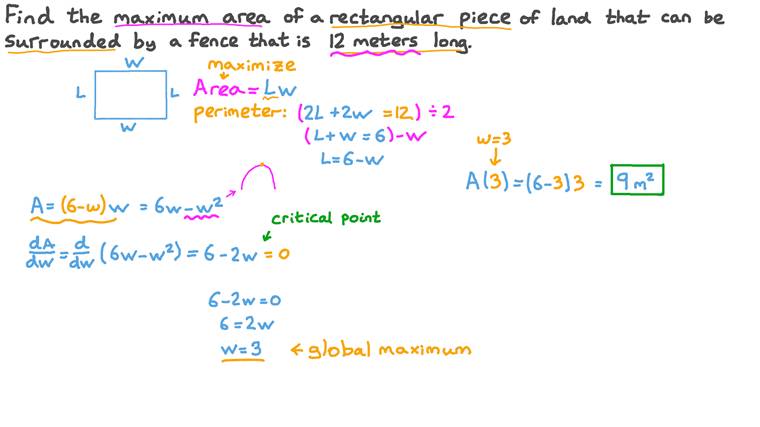 Find the maximum area of a rectangular piece of land that can be
surrounded by a fence that is 12 meters long.
W
maximize
L
L
Area = Lw
W
perimeter: (2L + 2w = 12) ÷ 2
(L + w = 6) - w
L = 6 - w
w = 3
A(3) = (6-3)3 = 9 m²
A = (6-w)w = 6w - w²
critical point
dA/dw = d/dw (6w - w²) = 6 - 2w = 0
6 - 2w = 0
6 = 2w
w = 3 ← global maximum